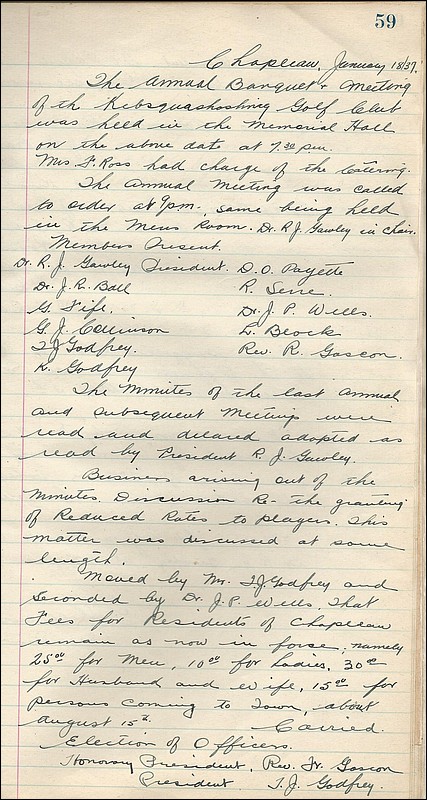 59
Chapleau, January 18/37.
The Annual Banquet & Meeting
of th Golf Club
was held in the Memorial Hall
on the above date at 7.30 pm.
Mrs F. Ross had charge of the Catering.
The Annual Meeting was called
to order at 9 pm. same being held
in the Mens Room. Dr. R J. Gawley in chair.
Members Present.
Dr. R. J. Gawley President. D. O. Payette
Dr. J. R. Ball R. Serre.
G. Fife. Dr. J. P. Wells.
G. J. Collinson L. Block
T J Godfrey. Rev. R. Gascon.
K. Godfrey
The Minutes of the last Annual
and subsequent Meetings were
read and delared adopted as
read by President R. J. Gawley.
Business arising out of the
Minutes. Discussion Re - the granting
of Reduced Rates to players. This
matter was discussed at some
length.
Moved by Mr. T. J. Godfrey and
Seconded by Dr. J. P. Wells. That
Fees for Residents of Chapleau
remain as now in force; namely
25 00 for Men, 10 00 for Ladies, 30 00
for Husband and Wife, 15 00 for
persons coming to Town, about
August 15th. Carried.
Election of Officers.
Honorary President, Rev. Fr. Gascon
President T. J. Godfrey.